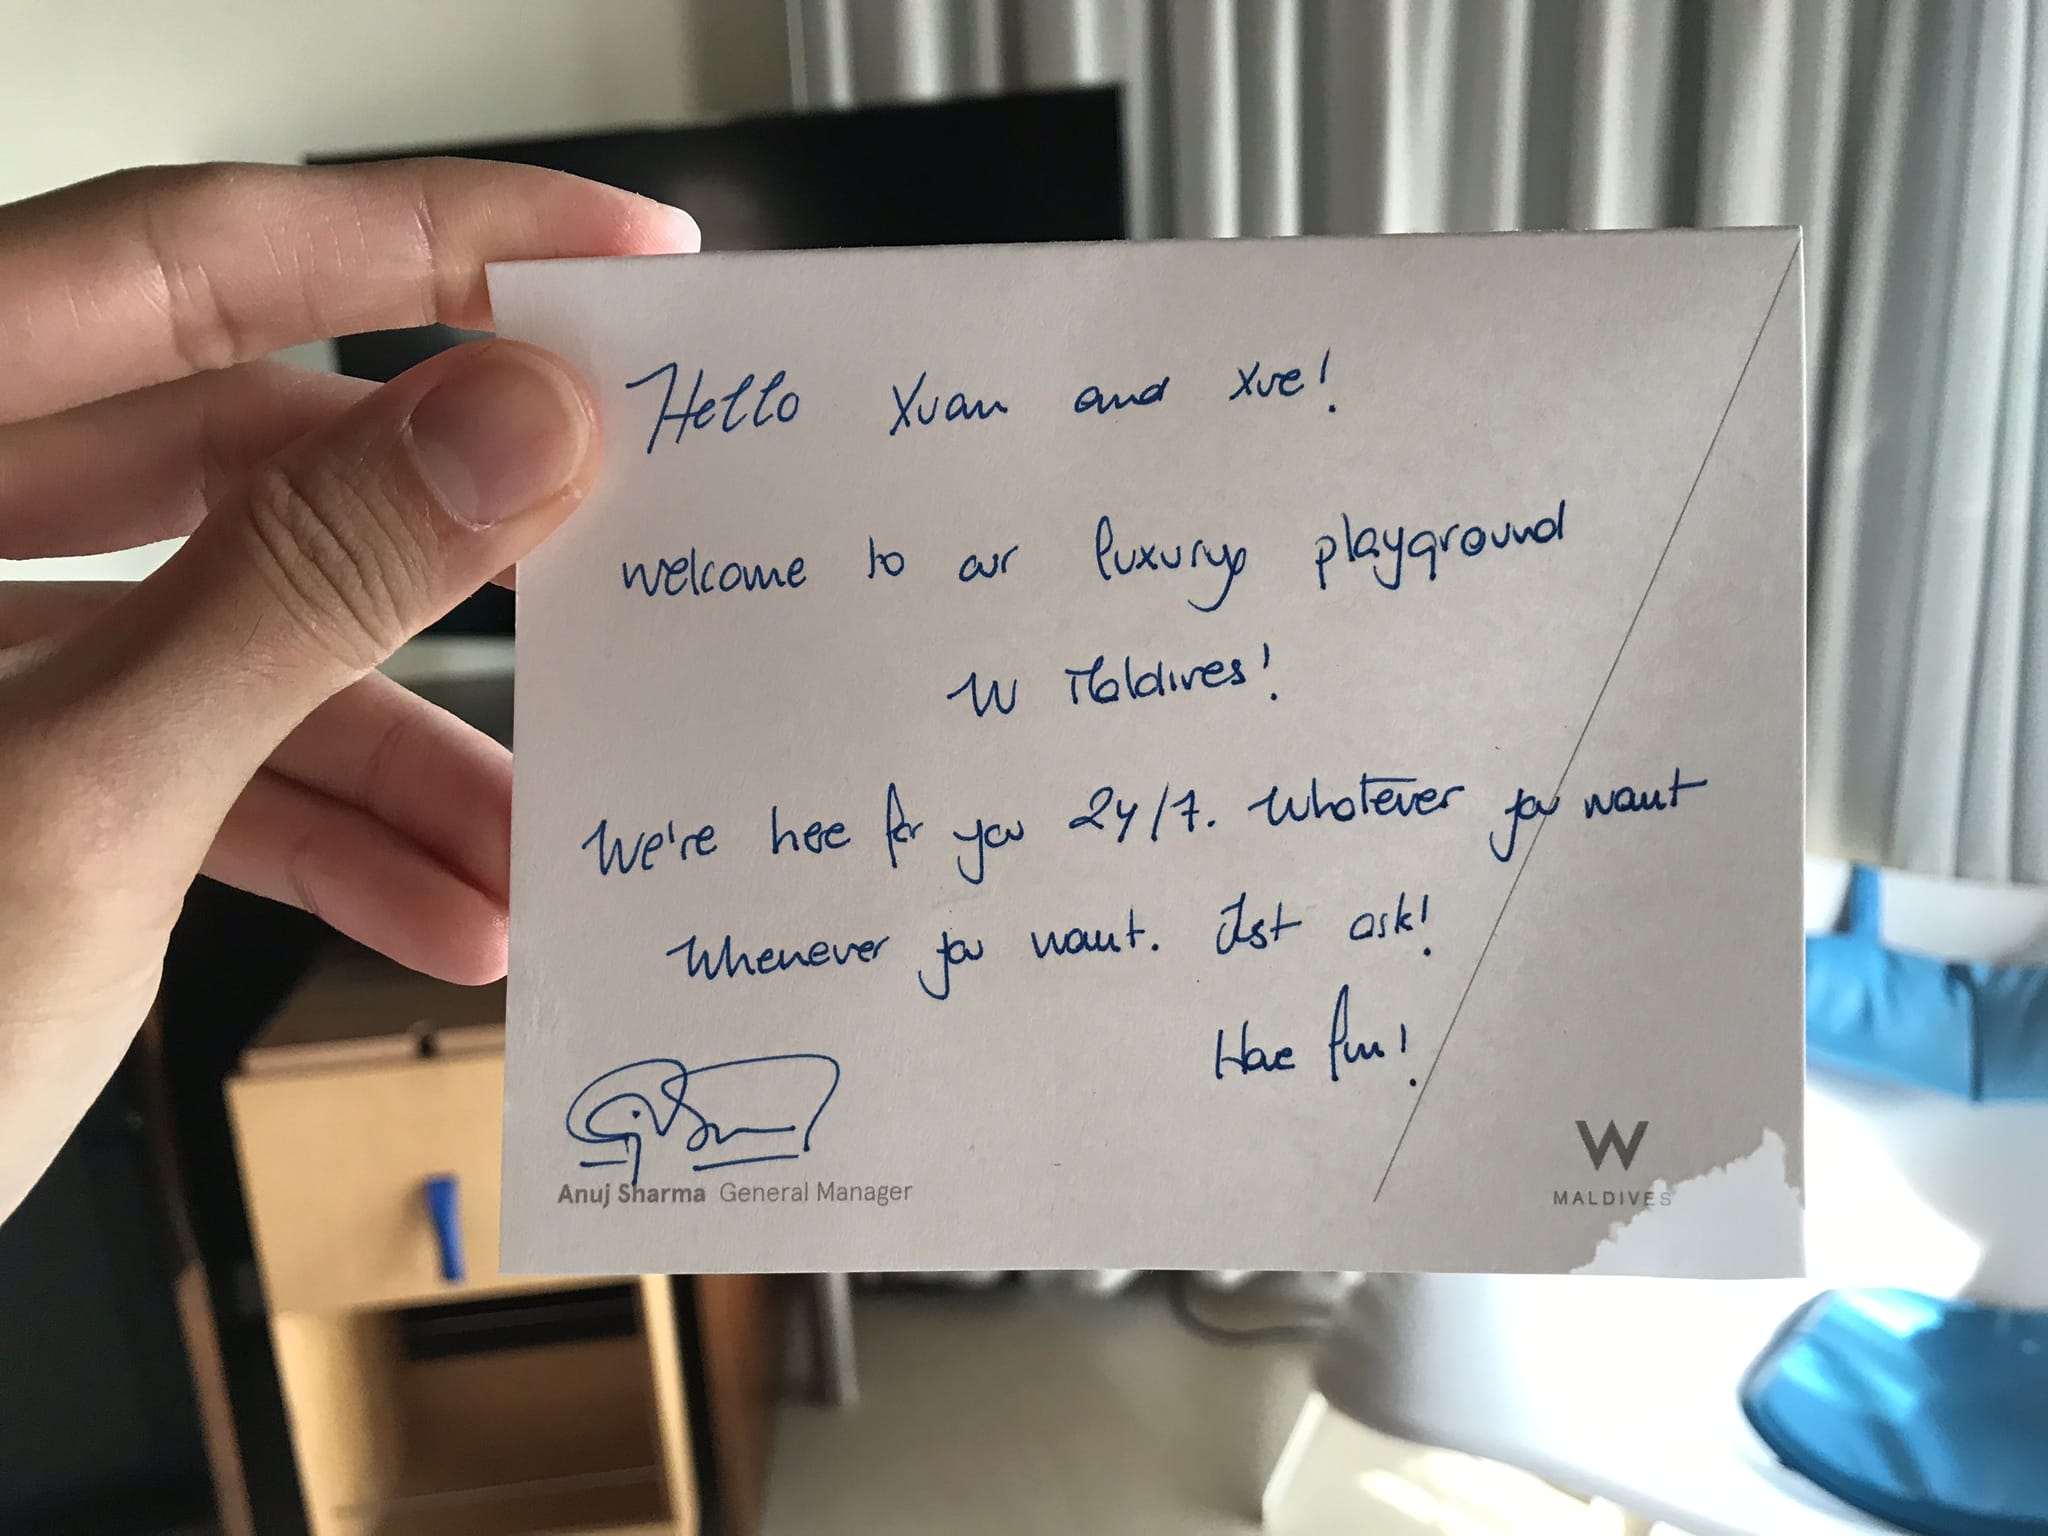 Hello Xuan and Xue!
welcome to our luxury playground
W Maldives!
We're here for you 24/7. Whatever you want
Whenever you want. Just ask!
Have fun!
Anuj Sharma General Manager
W
MALDIVES